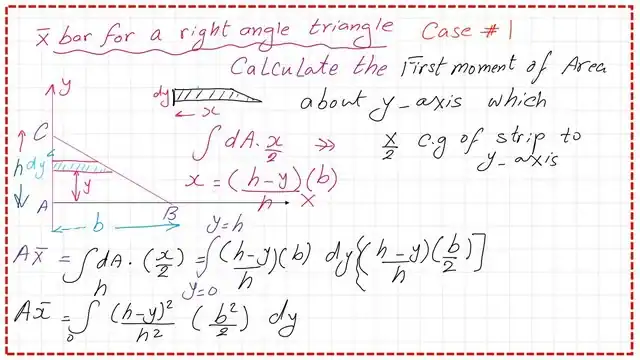 x̄ bar for a right angle triangle Case #1
Calculate the First moment of Area
about y-axis which
dy
x
∫ dA · x/2 >> x/2 c.g of strip to
y-axis
x = (h-y)(b)/h
y
C
h
dy
y
A
B
X
b
Ax̄ = ∫ dA · (x/2) = ∫_{y=0}^{y=h} (h-y)(b)/h dy {(h-y)/h (b/2)]
Ax̄ = ∫_0^h (h-y)²/h² (b²/2) dy